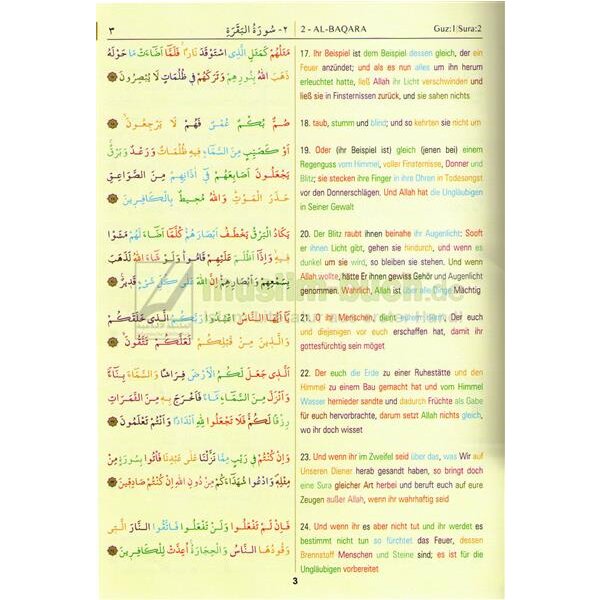 ٣
٢- سُورَةُ الْبَقَرَةِ
مَثَلُهُمْ كَمَثَلِ الَّذِي اسْتَوْقَدَ نَارًا فَلَمَّا أَضَاءَتْ مَا حَوْلَهُ
ذَهَبَ اللهُ بِنُورِهِمْ وَتَرَكَهُمْ فِي ظُلُمَاتٍ لَا يُبْصِرُونَ
صُمٌّ بُكْمٌ عُمْيٌ فَهُمْ لَا يَرْجِعُونَ
أَوْ كَصَيِّبٍ مِنَ السَّمَاءِ فِيهِ ظُلُمَاتٌ وَرَعْدٌ وَبَرْقٌ
يَجْعَلُونَ أَصَابِعَهُمْ فِي آذَانِهِمْ مِنَ الصَّوَاعِقِ
حَذَرَ الْمَوْتِ وَاللهُ مُحِيطٌ بِالْكَافِرِينَ
يَكَادُ الْبَرْقُ يَخْطَفُ أَبْصَارَهُمْ كُلَّمَا أَضَاءَ لَهُمْ مَشَوْا
فِيهِ وَإِذَا أَظْلَمَ عَلَيْهِمْ قَامُوا وَلَوْ شَاءَ اللهُ لَذَهَبَ
بِسَمْعِهِمْ وَأَبْصَارِهِمْ إِنَّ اللهَ عَلَى كُلِّ شَيْءٍ قَدِيرٌ
يَا أَيُّهَا النَّاسُ اعْبُدُوا رَبَّكُمُ الَّذِي خَلَقَكُمْ
وَالَّذِينَ مِنْ قَبْلِكُمْ لَعَلَّكُمْ تَتَّقُونَ
الَّذِي جَعَلَ لَكُمُ الْأَرْضَ فِرَاشًا وَالسَّمَاءَ بِنَاءً
وَأَنْزَلَ مِنَ السَّمَاءِ مَاءً فَأَخْرَجَ بِهِ مِنَ الثَّمَرَاتِ
رِزْقًا لَكُمْ فَلَا تَجْعَلُوا لِلهِ أَنْدَادًا وَأَنْتُمْ تَعْلَمُونَ
وَإِنْ كُنْتُمْ فِي رَيْبٍ مِمَّا نَزَّلْنَا عَلَى عَبْدِنَا فَأْتُوا بِسُورَةٍ مِنْ
مِثْلِهِ وَادْعُوا شُهَدَاءَكُمْ مِنْ دُونِ اللهِ إِنْ كُنْتُمْ صَادِقِينَ
فَإِنْ لَمْ تَفْعَلُوا وَلَنْ تَفْعَلُوا فَاتَّقُوا النَّارَ الَّتِي
وَقُودُهَا النَّاسُ وَالْحِجَارَةُ أُعِدَّتْ لِلْكَافِرِينَ
2 - AL-BAQARA
Guz:1|Sura:2
17. Ihr Beispiel ist dem Beispiel dessen gleich, der ein
Feuer anzündet; und als es nun alles um ihn herum
erleuchtet hatte, ließ Allah ihr Licht verschwinden und
ließ sie in Finsternissen zurück, und sie sahen nichts
18. taub, stumm und blind; und so kehrten sie nicht um
19. Oder (ihr Beispiel ist) gleich (jenen bei) einem
Regenguss vom Himmel, voller Finsternisse, Donner und
Blitz; sie stecken ihre Finger in ihre Ohren in Todesangst
vor den Donnerschlägen. Und Allah hat die Ungläubigen
in Seiner Gewalt
20. Der Blitz raubt ihnen beinahe ihr Augenlicht: Sooft
er ihnen Licht gibt, gehen sie hindurch, und wenn es
dunkel um sie wird, so bleiben sie stehen. Und wenn
Allah wollte, hätte Er ihnen gewiss Gehör und Augenlicht
genommen. Wahrlich, Allah ist über alle Dinge Mächtig
21. O ihr Menschen, dient eurem Herrn, Der euch
und diejenigen vor euch erschaffen hat, damit ihr
gottesfürchtig sein möget
22. Der euch die Erde zu einer Ruhestätte und den
Himmel zu einem Bau gemacht hat und vom Himmel
Wasser hernieder sandte und dadurch Früchte als Gabe
für euch hervorbrachte, darum setzt Allah nichts gleich,
wo ihr doch wisset
23. Und wenn ihr im Zweifel seid über das, was Wir auf
Unseren Diener herab gesandt haben, so bringt doch
eine Sura gleicher Art herbei und beruft euch auf eure
Zeugen außer Allah, wenn ihr wahrhaftig seid
24. Und wenn ihr es aber nicht tut und ihr werdet es
bestimmt nicht tun so fürchtet das Feuer, dessen
Brennstoff Menschen und Steine sind; es ist für die
Ungläubigen vorbereitet
3